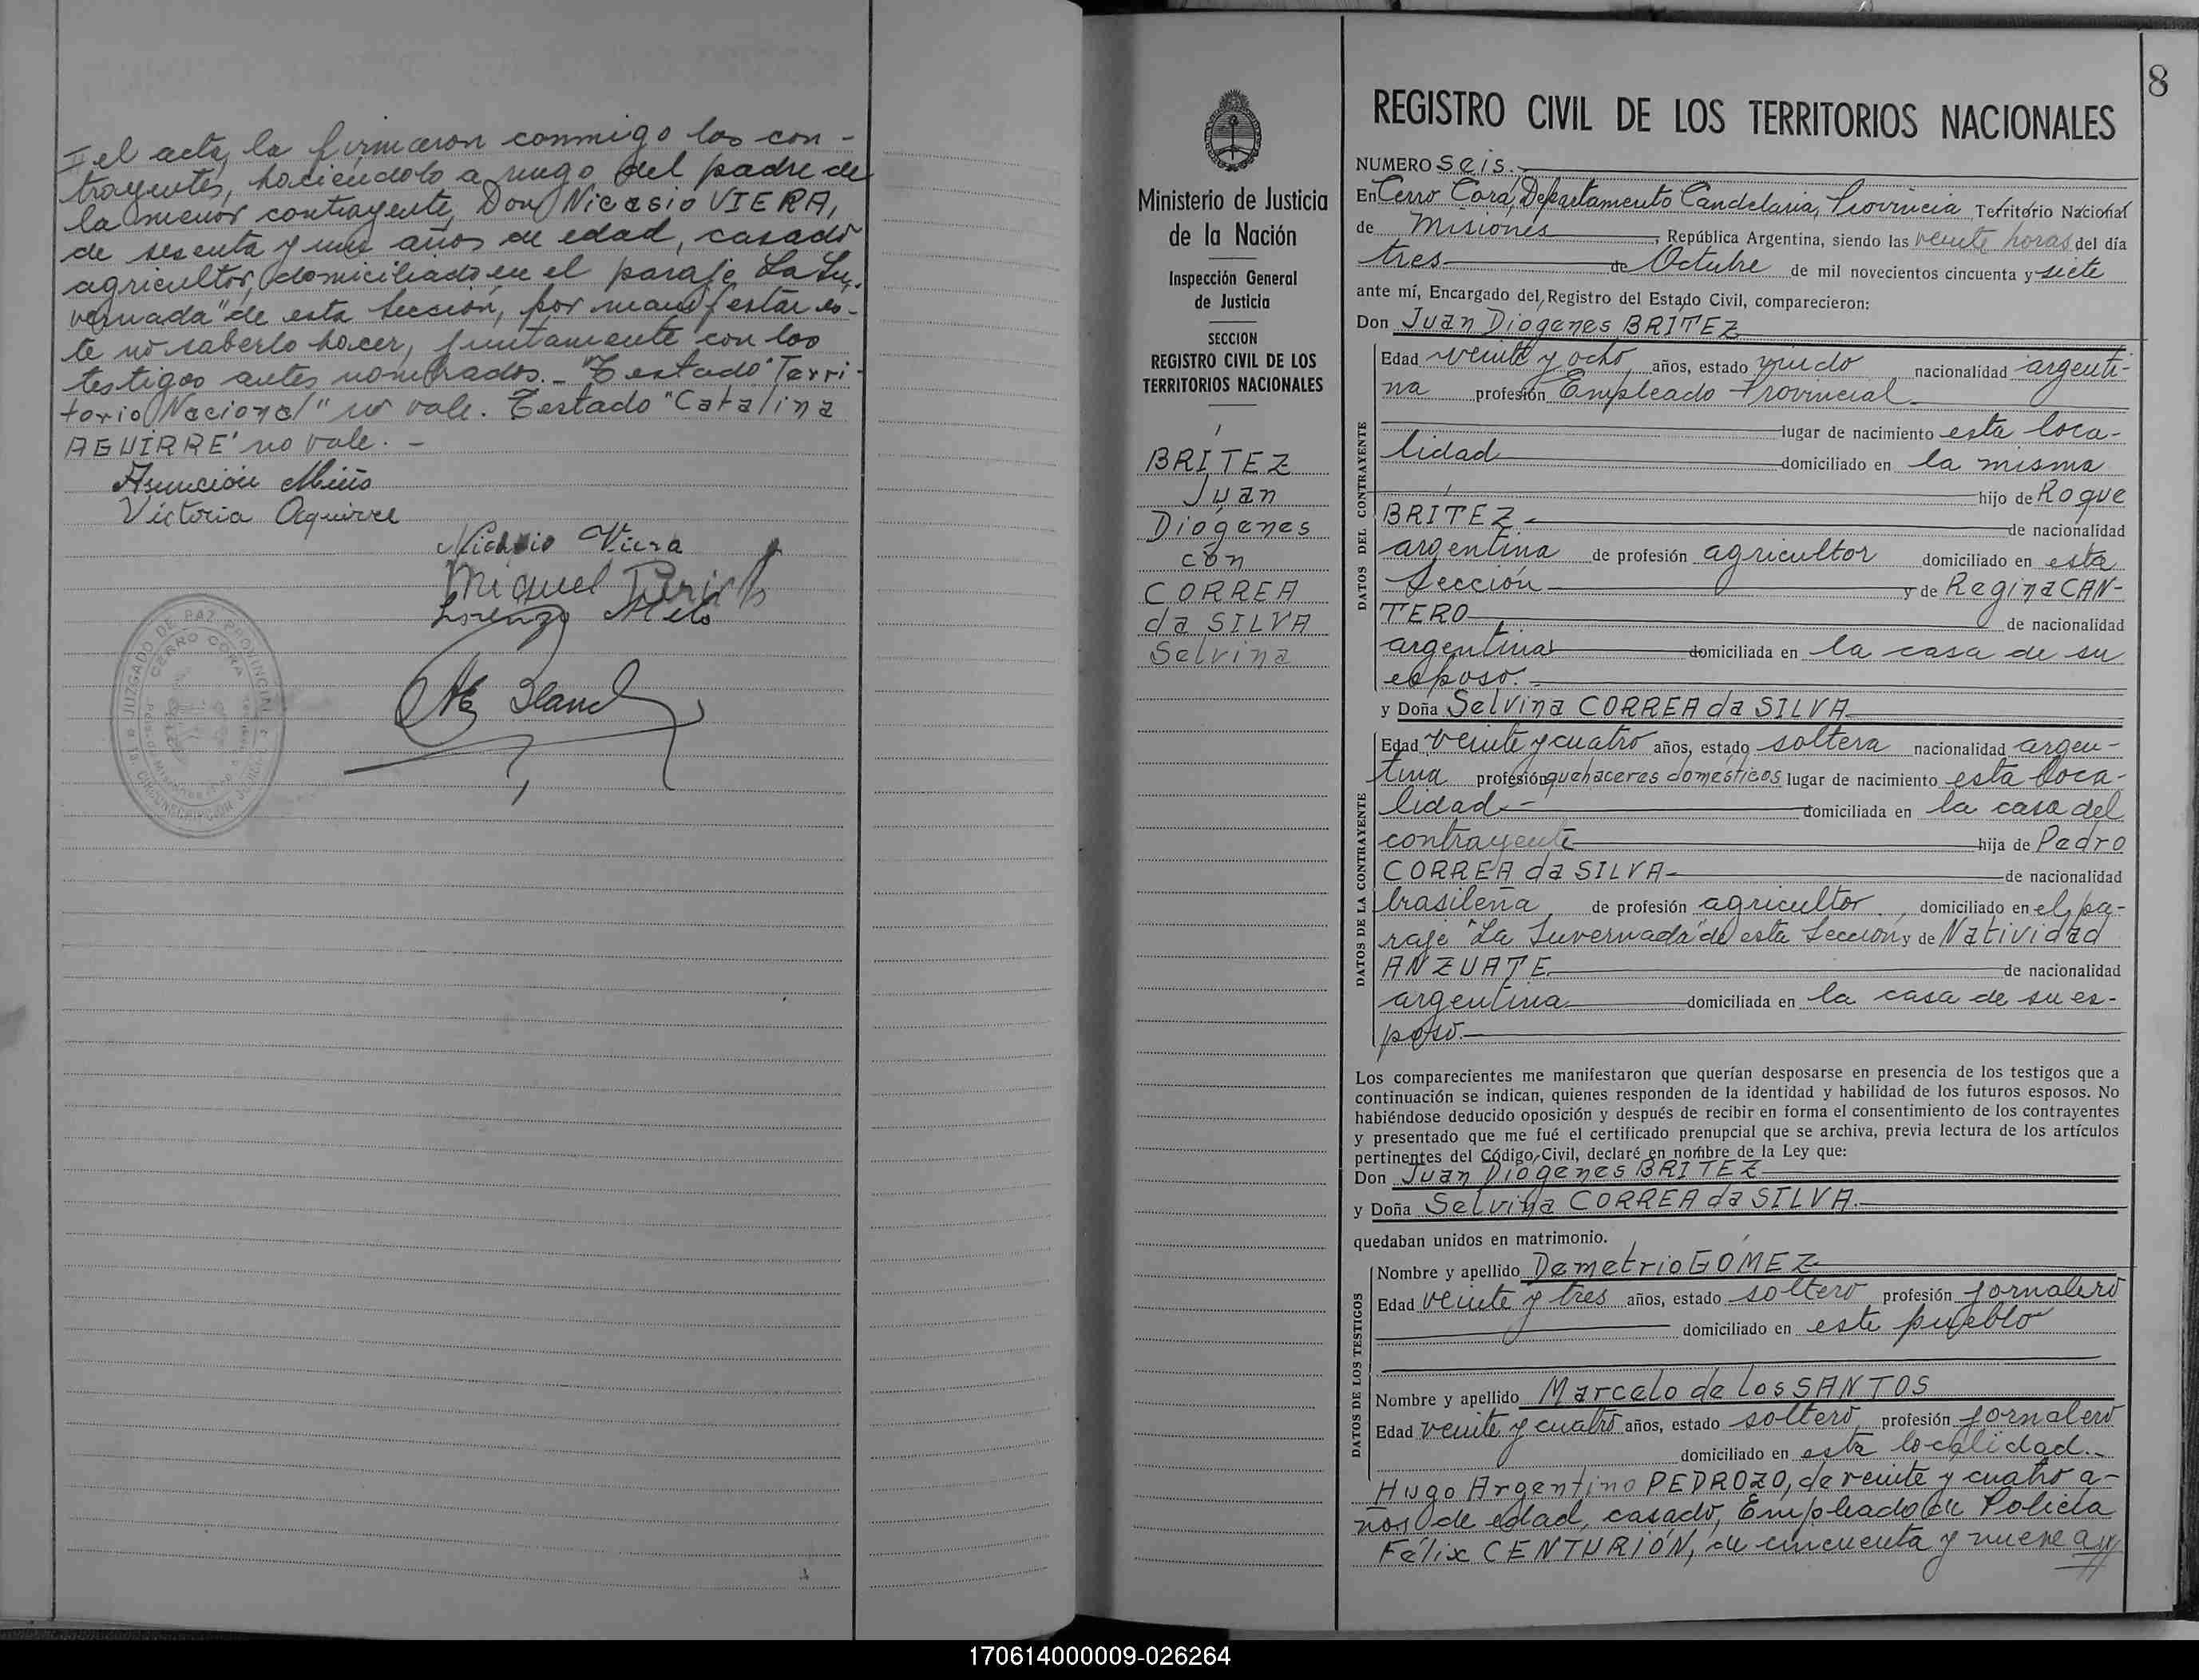 el acta, la firmaron conmigo los con-
trayentes, haciendolo a ruego del padre de
la menor contrayente, Don Nicasio VIERA,
de sesenta y un años de edad, casado
agricultor, domiciliado en el paraje "La In-
vernada" de esta Sección, por manifestar es-
te no saberlo hacer, juntamente con los
testigos antes nombrados.- Testado "Terri-
torio Nacional" no vale. Testado "Catalina
AGUIRRE" no vale. -
Asunción Miño
Victoria Aguirre
Nicasio Viera
Miguel
Lorenzo Melo
JUZGADO DE PAZ PROVINCIAL
CERRO CORA
8
Ministerio de Justicia
de la Nación
Inspección General
de Justicia
SECCION
REGISTRO CIVIL DE LOS
TERRITORIOS NACIONALES
BRITEZ
Juan
Diógenes
con
CORREA
da SILVA
Selvina
REGISTRO CIVIL DE LOS TERRITORIOS NACIONALES
NUMERO Seis.-
En Cerro Corá, Departamento Candelaria, Provincia Territorio Nacional
de Misiones, República Argentina, siendo las veinte horas del día
tres de Octubre de mil novecientos cincuenta y siete
ante mí, Encargado del Registro del Estado Civil, comparecieron:
Don Juan Diogenes BRITEZ
DATOS DEL CONTRAYENTE
Edad veinte y ocho años, estado viudo nacionalidad argenti-
na profesión Empleado Provincial
lugar de nacimiento esta loca-
lidad domiciliado en la misma
hijo de Roque
BRITEZ de nacionalidad
argentina de profesión agricultor domiciliado en esta
Sección y de Regina CAN-
TERO de nacionalidad
argentina domiciliada en la casa de su
esposo.
y Doña Selvina CORREA da SILVA
DATOS DE LA CONTRAYENTE
Edad veinte y cuatro años, estado soltera nacionalidad argen-
tina profesión quehaceres domésticos lugar de nacimiento esta loca-
lidad.- domiciliada en la casa del
contrayente hija de Pedro
CORREA da SILVA de nacionalidad
brasileña de profesión agricultor domiciliado en el pa-
raje "La Invernada" de esta Sección y de Natividad
ANZUATE de nacionalidad
argentina domiciliada en la casa de su es-
poso.
Los comparecientes me manifestaron que querían desposarse en presencia de los testigos que a
continuación se indican, quienes responden de la identidad y habilidad de los futuros esposos. No
habiéndose deducido oposición y después de recibir en forma el consentimiento de los contrayentes
y presentado que me fué el certificado prenupcial que se archiva, previa lectura de los artículos
pertinentes del Código Civil, declaré en nombre de la Ley que:
Don Juan Diogenes BRITEZ
y Doña Selvina CORREA da SILVA.
quedaban unidos en matrimonio.
DATOS DE LOS TESTIGOS
Nombre y apellido Demetrio GOMEZ
Edad veinte y tres años, estado soltero profesión jornalero
domiciliado en este pueblo
Nombre y apellido Marcelo de los SANTOS
Edad veinte y cuatro años, estado soltero profesión jornalero
domiciliado en esta localidad.-
Hugo Argentino PEDROZO, de veinte y cuatro a-
ños de edad, casado, Empleado de Policía
Félix CENTURIÓN, de cincuenta y nueve a
170614000009-026264